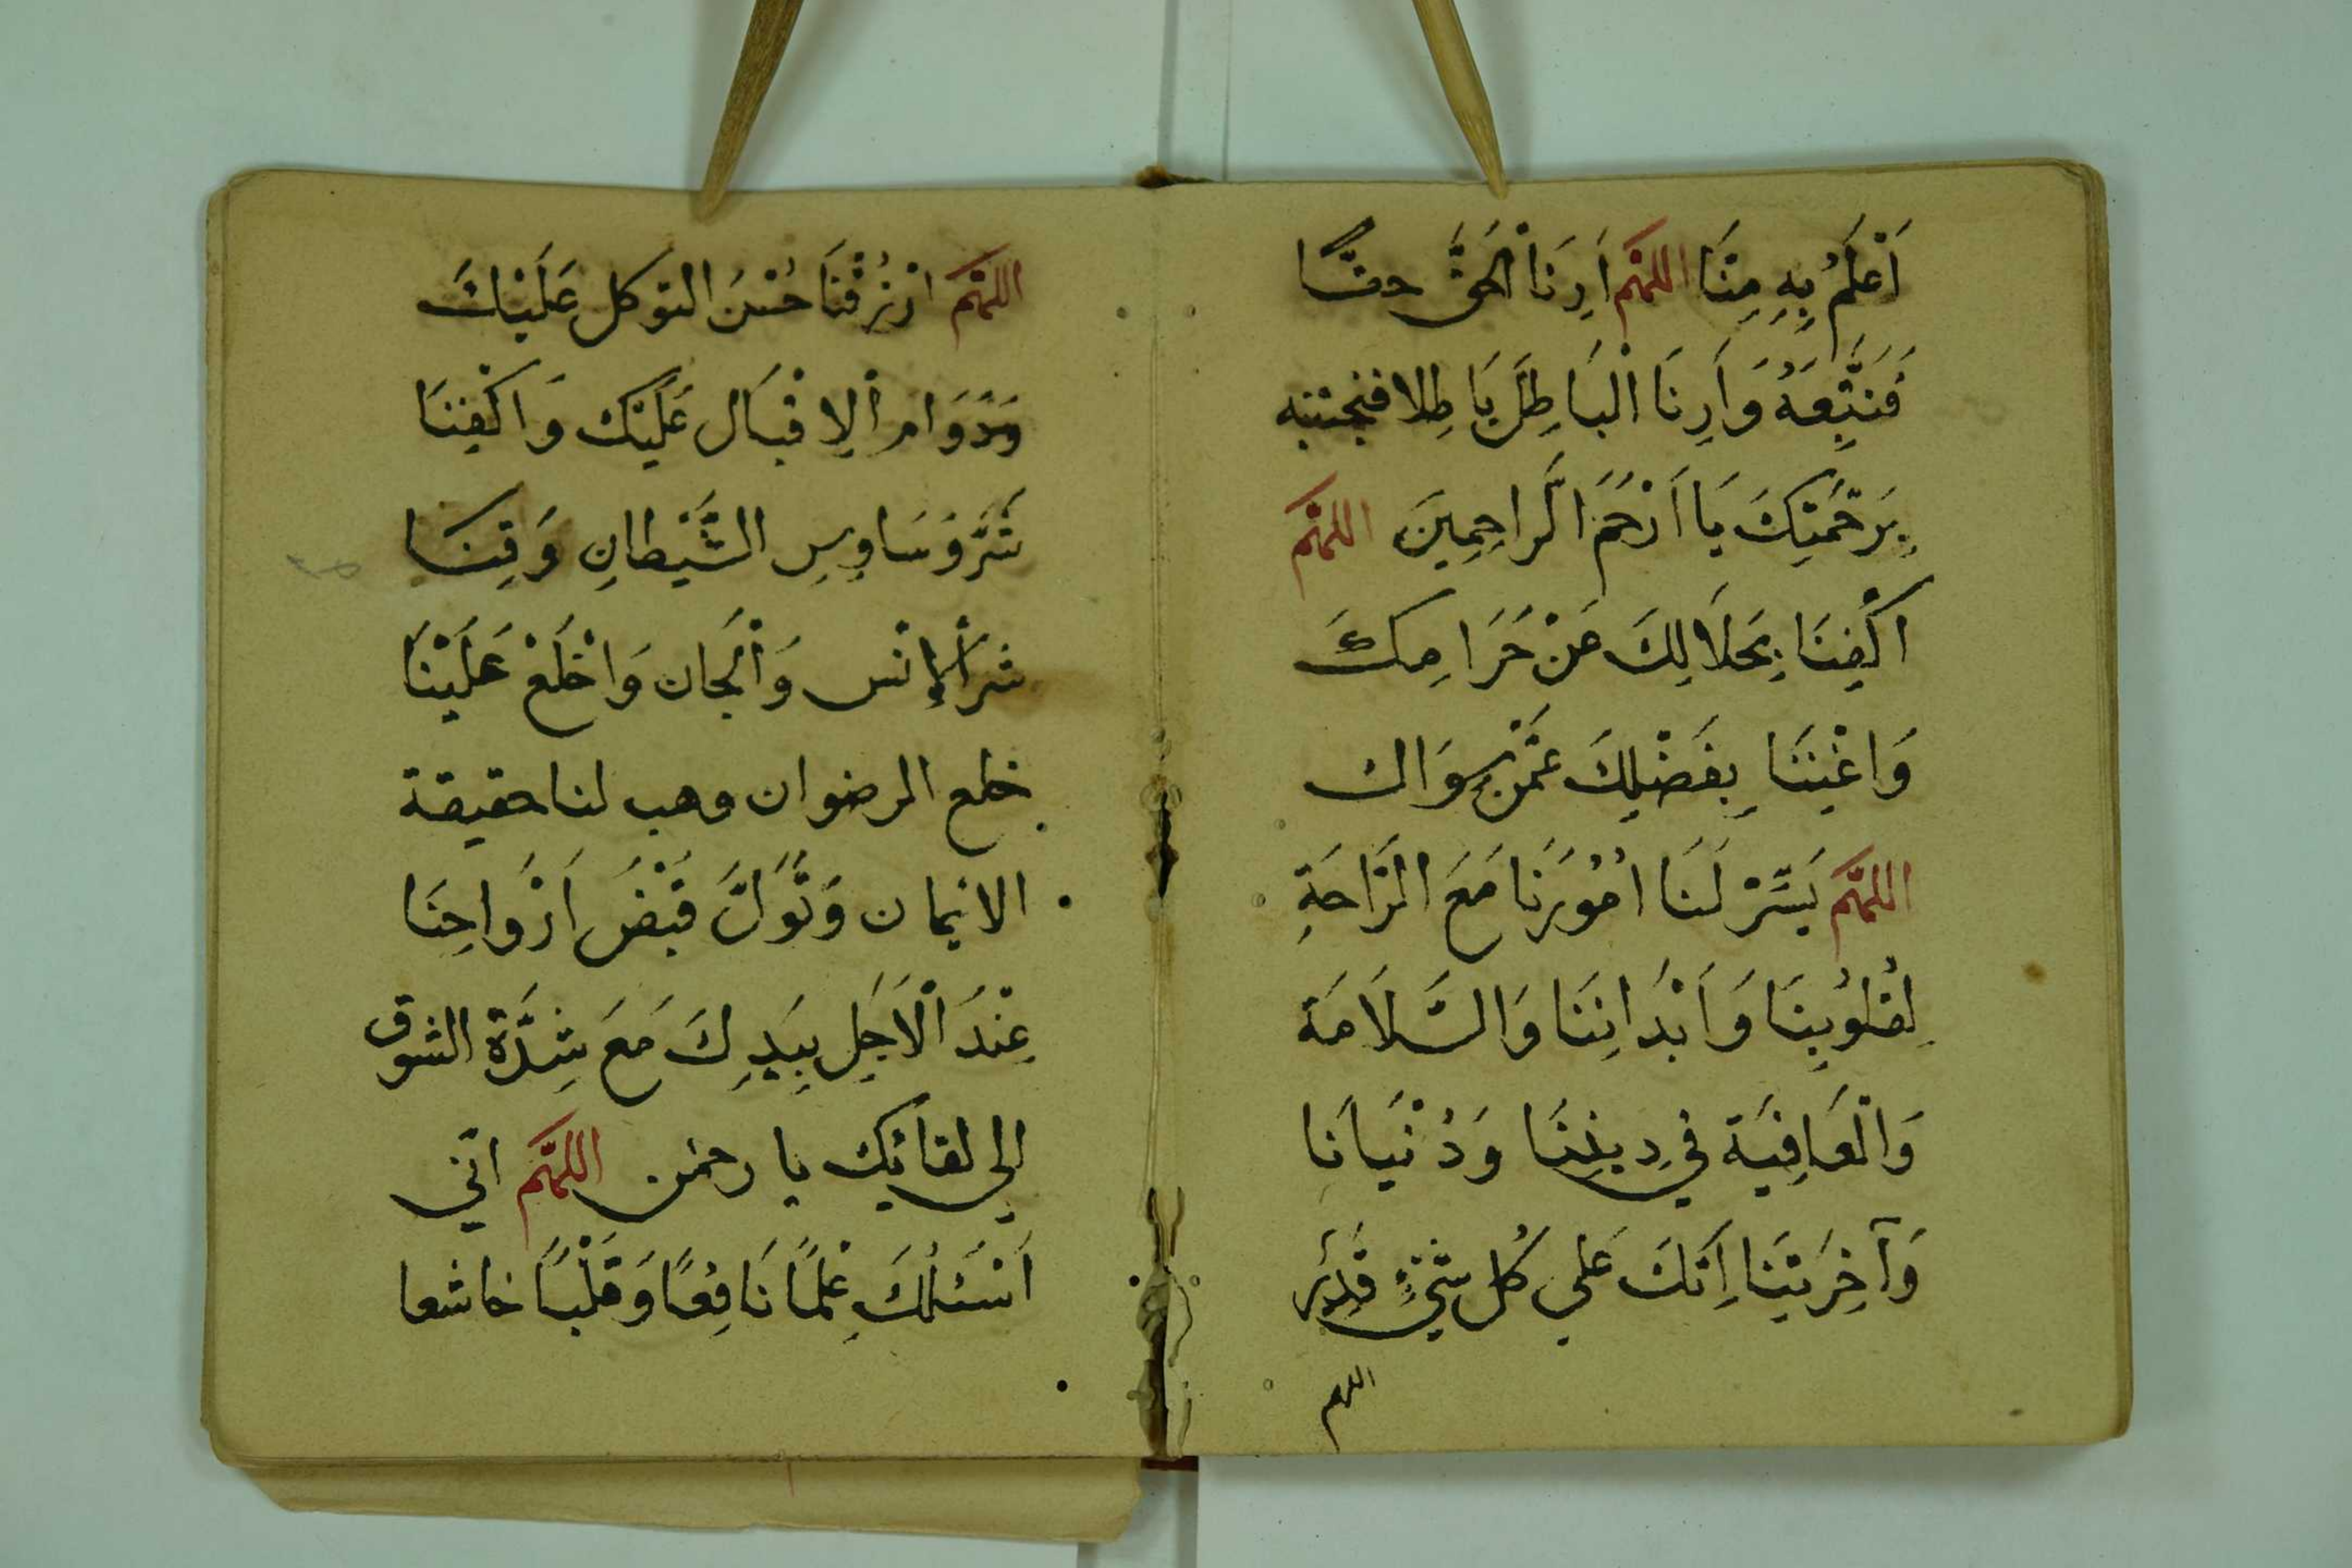 اَعْلَمُ بِهِ مِنَّا اللهُمَّ اَرِنَا اْلحَقَّ حقًّا
فَنَتَّبِعَهُ وَاَرِنَا الْبَاطِلَ بَاطِلا فنجتنبه
بِرَحْمَتِكَ يَا اَرْحَمَ الَّراحِمِينَ اللهُمَّ
اكْفِنَا بِحَلَالِكَ عَنْ حَرَامِكَ
وَاغْنِنَا بِفَضْلِكَ عَمَّنْ سِوَاك
اللهُمَّ يَسِّرْ لَنَا اُمُوْرَنَا مَعَ الرَّاحَةِ
لِقُلُوْبِنَا وَاَبْدَانِنَا وَالسَّلَامَة
وَالْعَافِيَة في دِيِنِنَا وَدُنْيَانَا
وَآخِرَتِنَا اِنَّكَ عَلي كُل شَيْءٍ قَدِيْر
اللهم
اللهُمَّ ارْزُقْنَا حُسْنَ التوكل عَلَيْكَ
وَدَوَام اْلاِقْبَال عَلَيْك وَاكْفِنَا
شَرَّ وَسَاوِسِ الشَّيْطانِ وَقِنَا
شَر اْلاِنْس وَاْلجَان وَاخْلَعْ عَلَيْنَا
خلع الرضوان وهب لنا حقيقة
الايمان وَتَوَلَّ قَبْضَ اَرْواحِنَا
عِنْدَ اْلاَجَلِ بِيَدِكَ مَعَ شِدَّةِ الشوق
الي لقائِك يا رحمن اللهُمَّ انّي
اَسْئَلُكَ عِلْمًا نَافِعًا وَقَلْبًا خاشعا